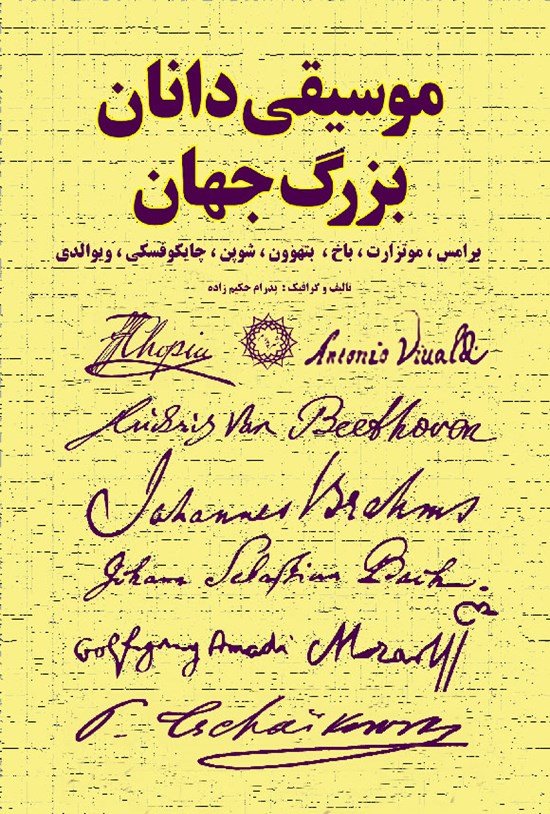 موسیقی دانان
بزرگ جهان
برامس ، موتزارت ، باخ ، بتهوون ، شوپن ، چایکوفسکی ، ویوالدی
تالیف و گرافیک : پدرام حکیم زاده
FChopin Antonio Vivaldi
Ludwig Van Beethoven
Johannes Brahms
Johann Sebastian Bach.
Wolfgang Amadi Mozart
P. Tschaikowsky